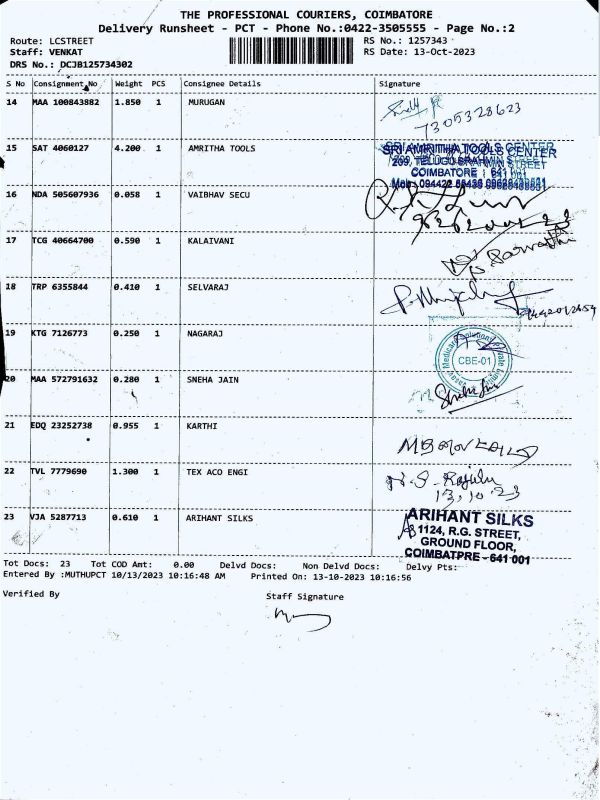 THE PROFESSIONAL COURIERS, COIMBATORE
Delivery Runsheet - PCT - Phone No.:0422-3505555 - Page No.:2
Route: LCSTREET
RS No.: 1257343
Staff: VENKAT
RS Date: 13-Oct-2023
DRS No.: DCJB125734302
S No Consignment No Weight PCS Consignee Details Signature
14 MAA 100843882 1.850 1 MURUGAN
7305328623
15 SAT 4060127 4.200 1 AMRITHA TOOLS
SRI AMRITHA TOOLS CENTER
209, TELUGU BRAHMIN STREET
COIMBATORE - 641 001
16 NDA 505607936 0.058 1 VAIBHAV SECU
17 TCG 40664700 0.590 1 KALAIVANI
18 TRP 6355844 0.410 1 SELVARAJ
19 KTG 7126773 0.250 1 NAGARAJ
CBE-01
20 MAA 572791632 0.280 1 SNEHA JAIN
21 EDQ 23252738 0.955 1 KARTHI
22 TVL 7779690 1.300 1 TEX ACO ENGI
13.10.23
23 VJA 5287713 0.610 1 ARIHANT SILKS
ARIHANT SILKS
1124, R.G. STREET,
GROUND FLOOR,
COIMBATPRE - 641 001
Tot Docs: 23 Tot COD Amt: 0.00 Delvd Docs: Non Delvd Docs: Delvy Pts:
Entered By :MUTHUPCT 10/13/2023 10:16:48 AM Printed On: 13-10-2023 10:16:56
Verified By Staff Signature